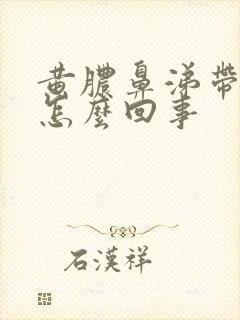 黄膿鼻涕帶
怎麼回事
石漢祥